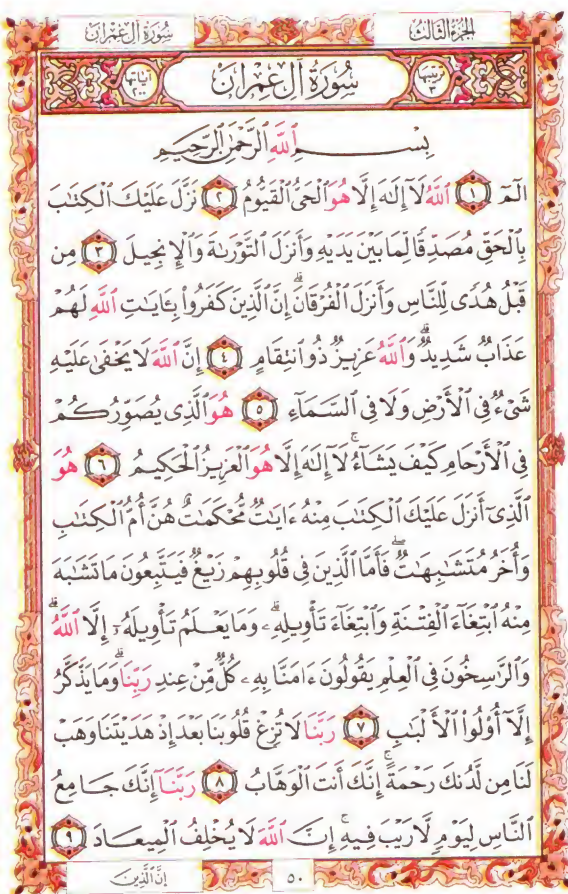 سُورَةُ آلِ عِمْرَانَ الجُزْءُ الثَّالِثُ
آيَاتُهَا ٢٠٠ سُورَةُ آلِ عِمْرَانَ تَرْتِيبُهَا ٣
بِسْمِ ٱللَّهِ ٱلرَّحْمَٰنِ ٱلرَّحِيمِ
الٓمٓ ١ ٱللَّهُ لَآ إِلَٰهَ إِلَّا هُوَ ٱلْحَىُّ ٱلْقَيُّومُ ٢ نَزَّلَ عَلَيْكَ ٱلْكِتَٰبَ
بِٱلْحَقِّ مُصَدِّقًا لِّمَا بَيْنَ يَدَيْهِ وَأَنزَلَ ٱلتَّوْرَىٰةَ وَٱلْإِنجِيلَ ٣ مِن
قَبْلُ هُدًى لِّلنَّاسِ وَأَنزَلَ ٱلْفُرْقَانَ ۗ إِنَّ ٱلَّذِينَ كَفَرُوا۟ بِـَٔايَٰتِ ٱللَّهِ لَهُمْ
عَذَابٌ شَدِيدٌ ۗ وَٱللَّهُ عَزِيزٌ ذُو ٱنتِقَامٍ ٤ إِنَّ ٱللَّهَ لَا يَخْفَىٰ عَلَيْهِ
شَىْءٌ فِى ٱلْأَرْضِ وَلَا فِى ٱلسَّمَآءِ ٥ هُوَ ٱلَّذِى يُصَوِّرُكُمْ
فِى ٱلْأَرْحَامِ كَيْفَ يَشَآءُ ۚ لَآ إِلَٰهَ إِلَّا هُوَ ٱلْعَزِيزُ ٱلْحَكِيمُ ٦ هُوَ
ٱلَّذِىٓ أَنزَلَ عَلَيْكَ ٱلْكِتَٰبَ مِنْهُ ءَايَٰتٌ مُّحْكَمَٰتٌ هُنَّ أُمُّ ٱلْكِتَٰبِ
وَأُخَرُ مُتَشَٰبِهَٰتٌ ۖ فَأَمَّا ٱلَّذِينَ فِى قُلُوبِهِمْ زَيْغٌ فَيَتَّبِعُونَ مَا تَشَٰبَهَ
مِنْهُ ٱبْتِغَآءَ ٱلْفِتْنَةِ وَٱبْتِغَآءَ تَأْوِيلِهِۦ ۗ وَمَا يَعْلَمُ تَأْوِيلَهُۥٓ إِلَّا ٱللَّهُ ۗ
وَٱلرَّٰسِخُونَ فِى ٱلْعِلْمِ يَقُولُونَ ءَامَنَّا بِهِۦ كُلٌّ مِّنْ عِندِ رَبِّنَا ۗ وَمَا يَذَّكَّرُ
إِلَّآ أُو۟لُوا۟ ٱلْأَلْبَٰبِ ٧ رَبَّنَا لَا تُزِغْ قُلُوبَنَا بَعْدَ إِذْ هَدَيْتَنَا وَهَبْ
لَنَا مِن لَّدُنكَ رَحْمَةً ۚ إِنَّكَ أَنتَ ٱلْوَهَّابُ ٨ رَبَّنَآ إِنَّكَ جَامِعُ
ٱلنَّاسِ لِيَوْمٍ لَّا رَيْبَ فِيهِ ۚ إِنَّ ٱللَّهَ لَا يُخْلِفُ ٱلْمِيعَادَ ٩
٥٠ إِنَّ الَّذِينَ